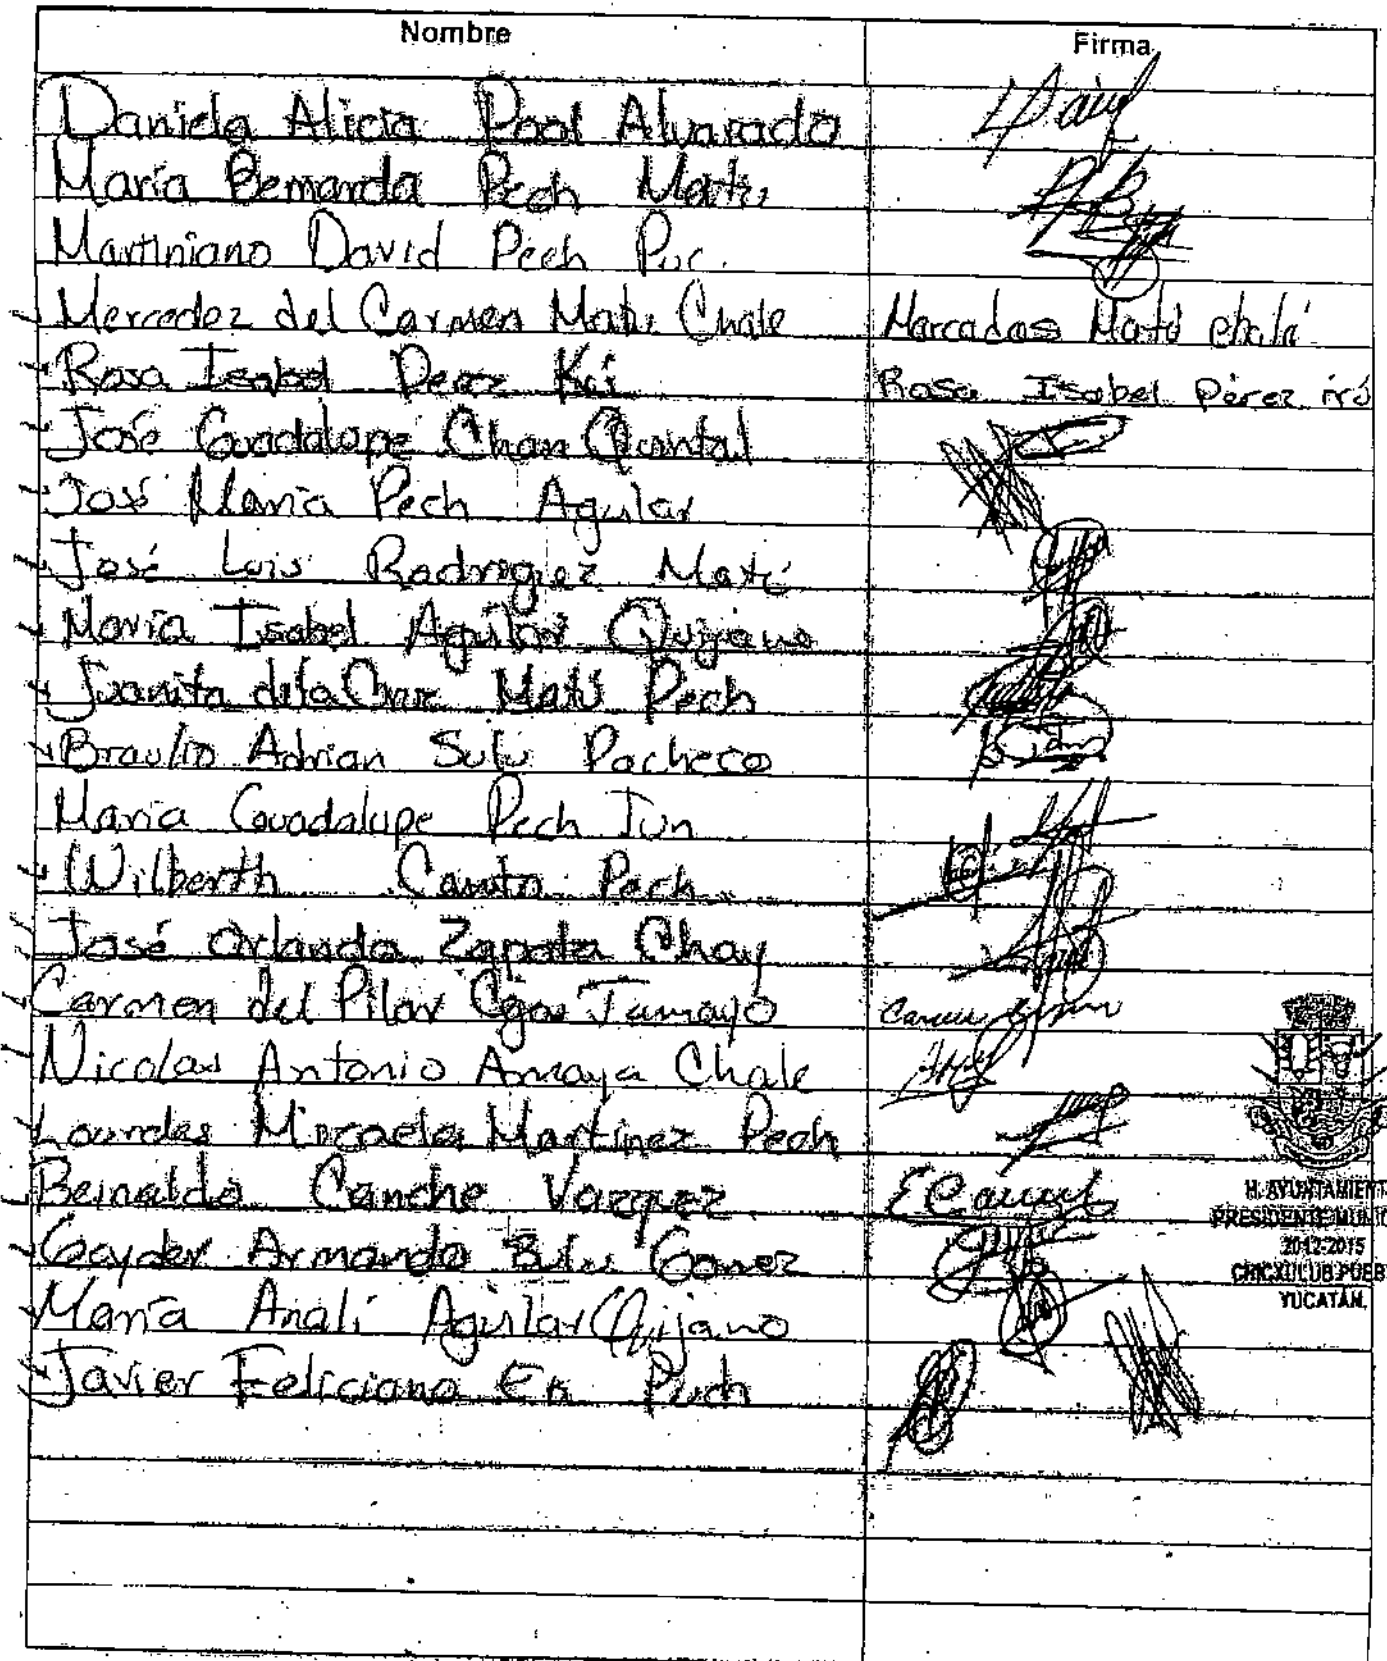 Nombre Firma
Daniela Alicia Pool Alvarado
María Bernarda Pech Matu
Martiniano David Pech Puc.
Mercedez del Carmen Matu Chale Marcadas Matú chalé
Rosa Isabel Perez Kú Rosa Isabel Pérez
José Guadalupe Chan Quintal
José María Pech Aguilar
José Luis Rodriguez Matú
María Isabel Aguilar Quijano
Juanita de la Cruz Matú Pech
Braulio Adrian Sulu Pacheco
María Guadalupe Pech Tun
Wilberth Canto Pech
José Orlando Zapata Chay
Carmen del Pilar Tamayo Carmen
Nicolas Antonio Amaya Chale
Lourdes Micaela Martínez Pech
Beinaldo Canche Vazquez
Gayder Armando Sulu Gomez
María Analí Aguilar Quijano
Javier Feliciano Ek Puch
H. AYUNTAMIENT
PRESIDENTE MUNIC
2012-2015
CHICXULUB PUEB
YUCATÁN.